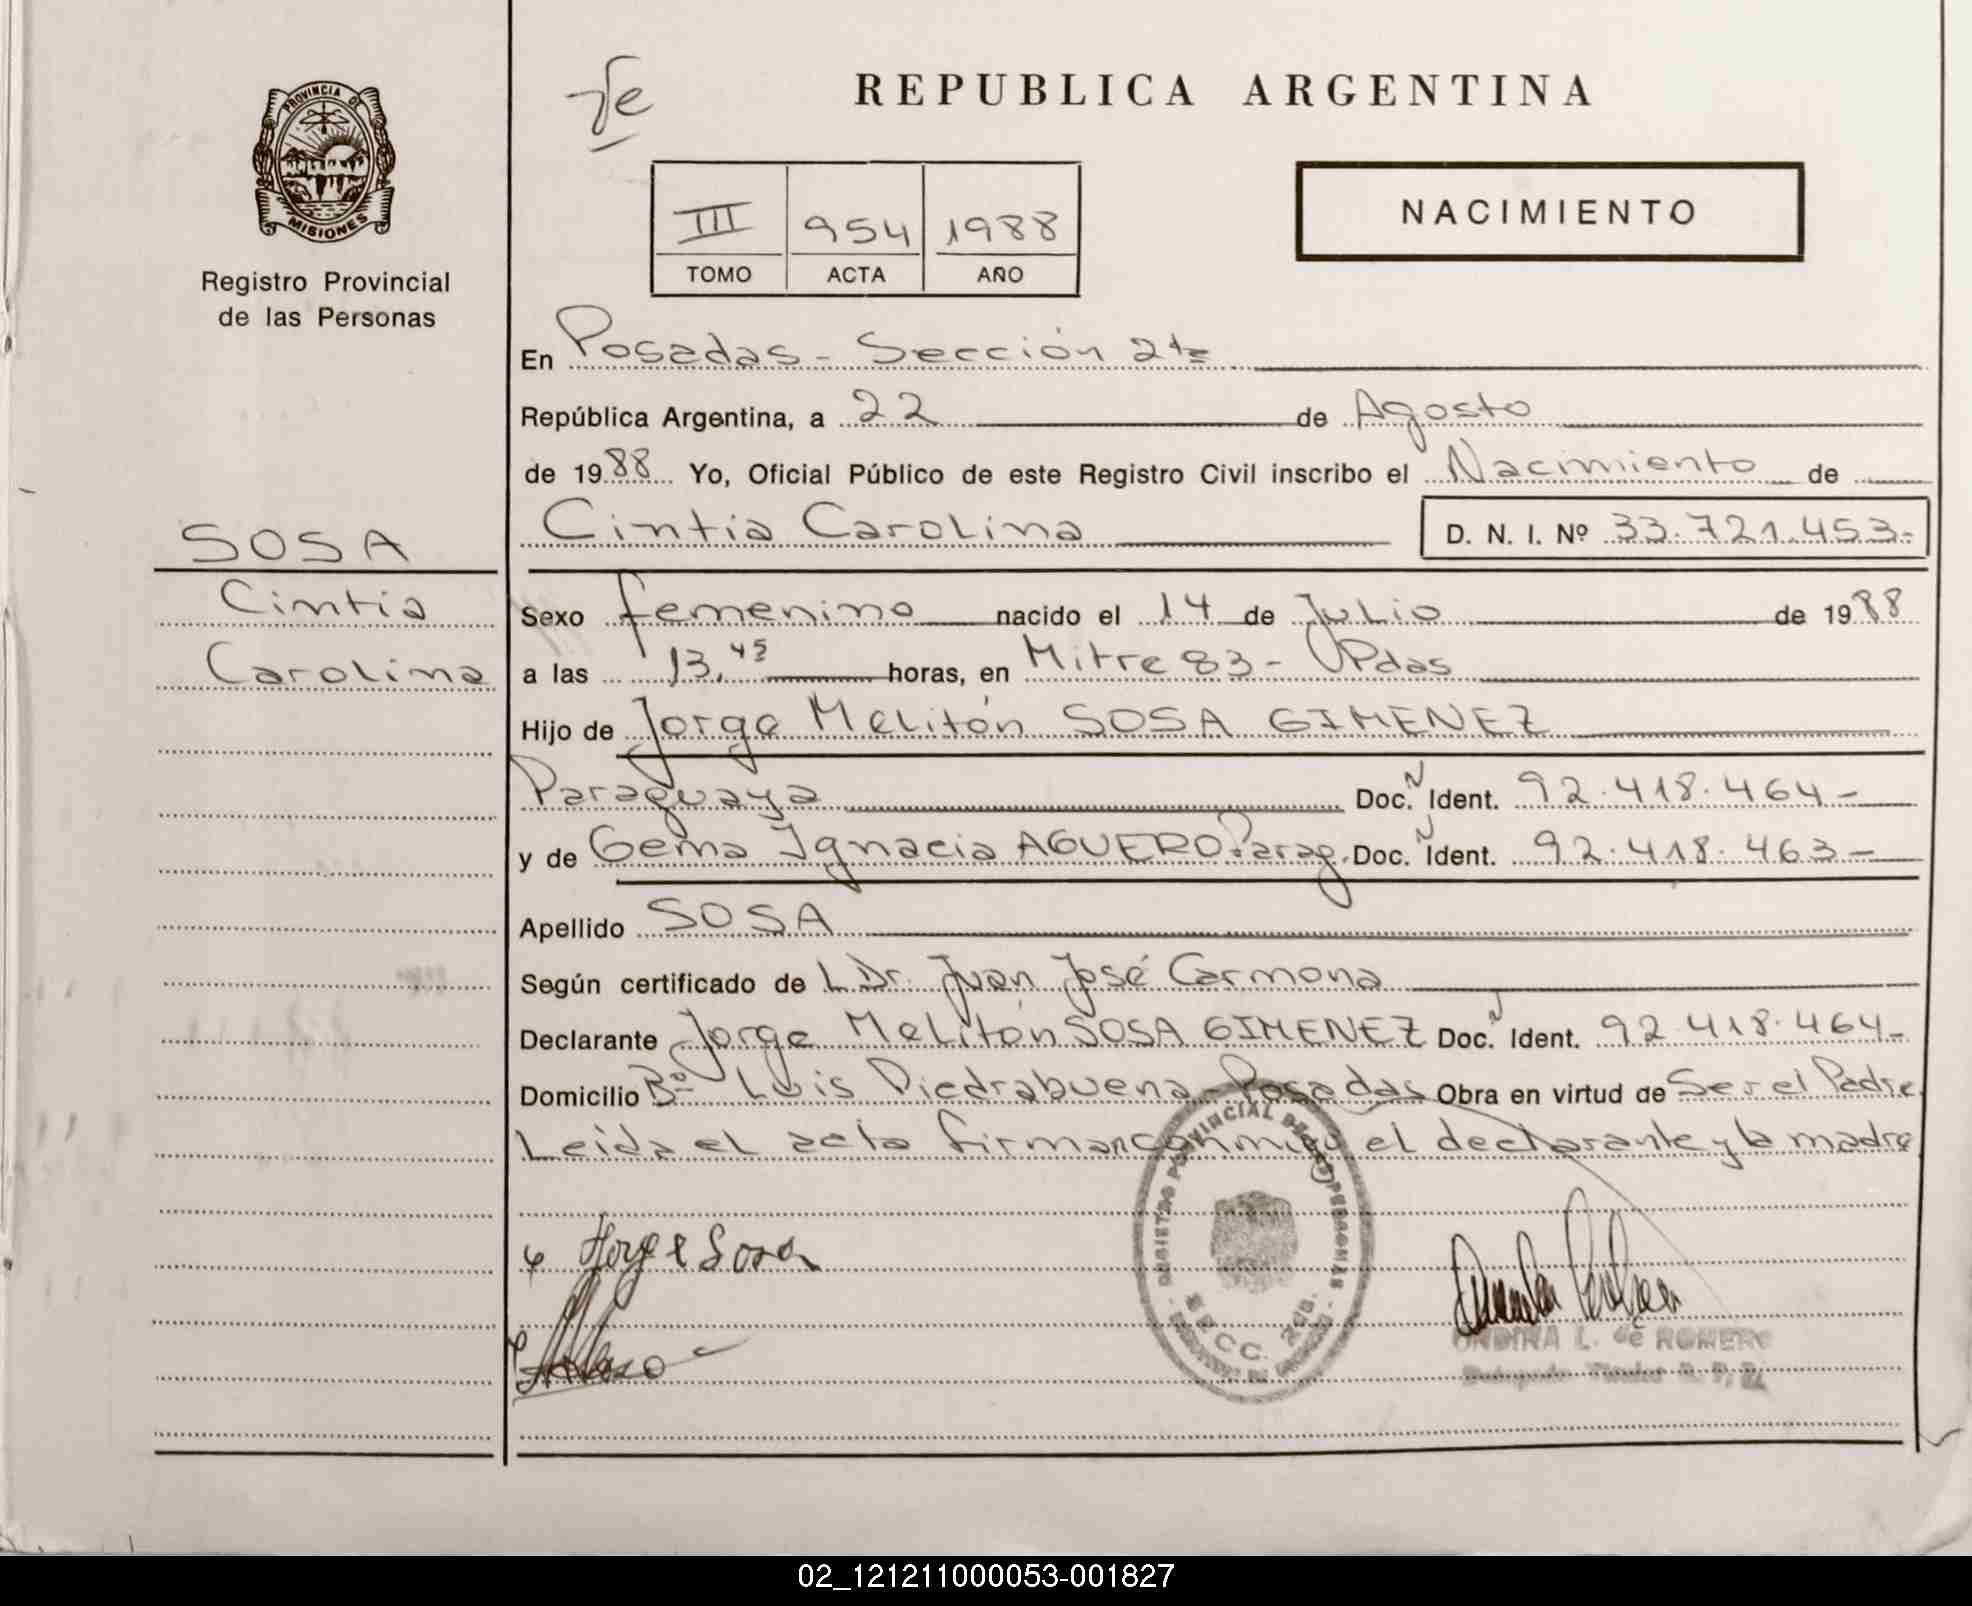 REPUBLICA ARGENTINA
PROVINCIA DE
MISIONES
Registro Provincial
de las Personas
III 954 1988
TOMO ACTA AÑO
NACIMIENTO
En Posadas - Sección 2da
República Argentina, a 22 de Agosto
de 1988 Yo, Oficial Público de este Registro Civil inscribo el Nacimiento de
Cintia Carolina D. N. I. Nº 33.721.453-
SOSA
Cintia
Carolina
Sexo femenino nacido el 14 de Julio de 1988
a las 13,45 horas, en Mitre 83 - Pdas
Hijo de Jorge Melitón SOSA GIMENEZ
Paraguaya Doc. Ident. 92.418.464-
y de Gema Ignacia AGUERO Parag. Doc. Ident. 92.418.463-
Apellido SOSA
Según certificado de L Dr. Juan José Carmona
Declarante Jorge Melitón SOSA GIMENEZ Doc. Ident. 92.418.464-
Domicilio Bº Luis Piedrabuena - Posadas Obra en virtud de Ser el Padre
Leida el acta firman conmigo el declarante y la madre
Jorge Sosa
REGISTRO PROVINCIAL DE LAS PERSONAS
ONDINA L. de ROMERO
02_121211000053-001827